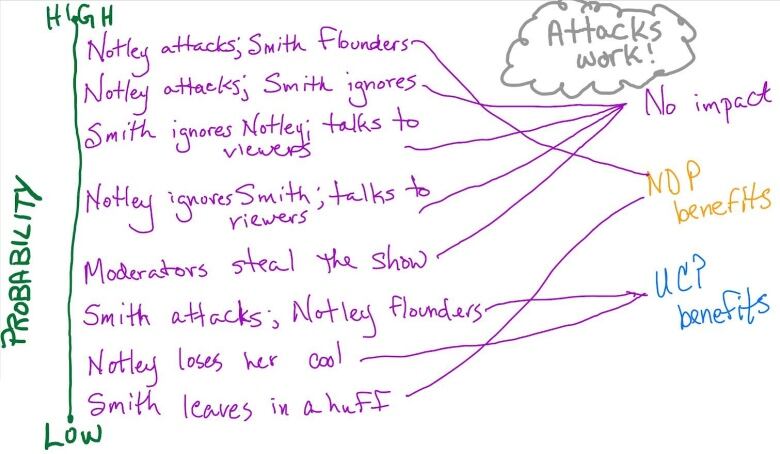 HIGH
Notley attacks; Smith Flounders
Notley attacks; Smith ignores
Smith ignores Notley; talks to
viewers
Notley ignores Smith; talks to
viewers
Moderators steal the show
Smith attacks; Notley flounders
Notley loses her cool
Smith leaves in a huff
LOW
PROBABILITY
Attacks
work!
No impact
NDP
benefits
UCP
benefits